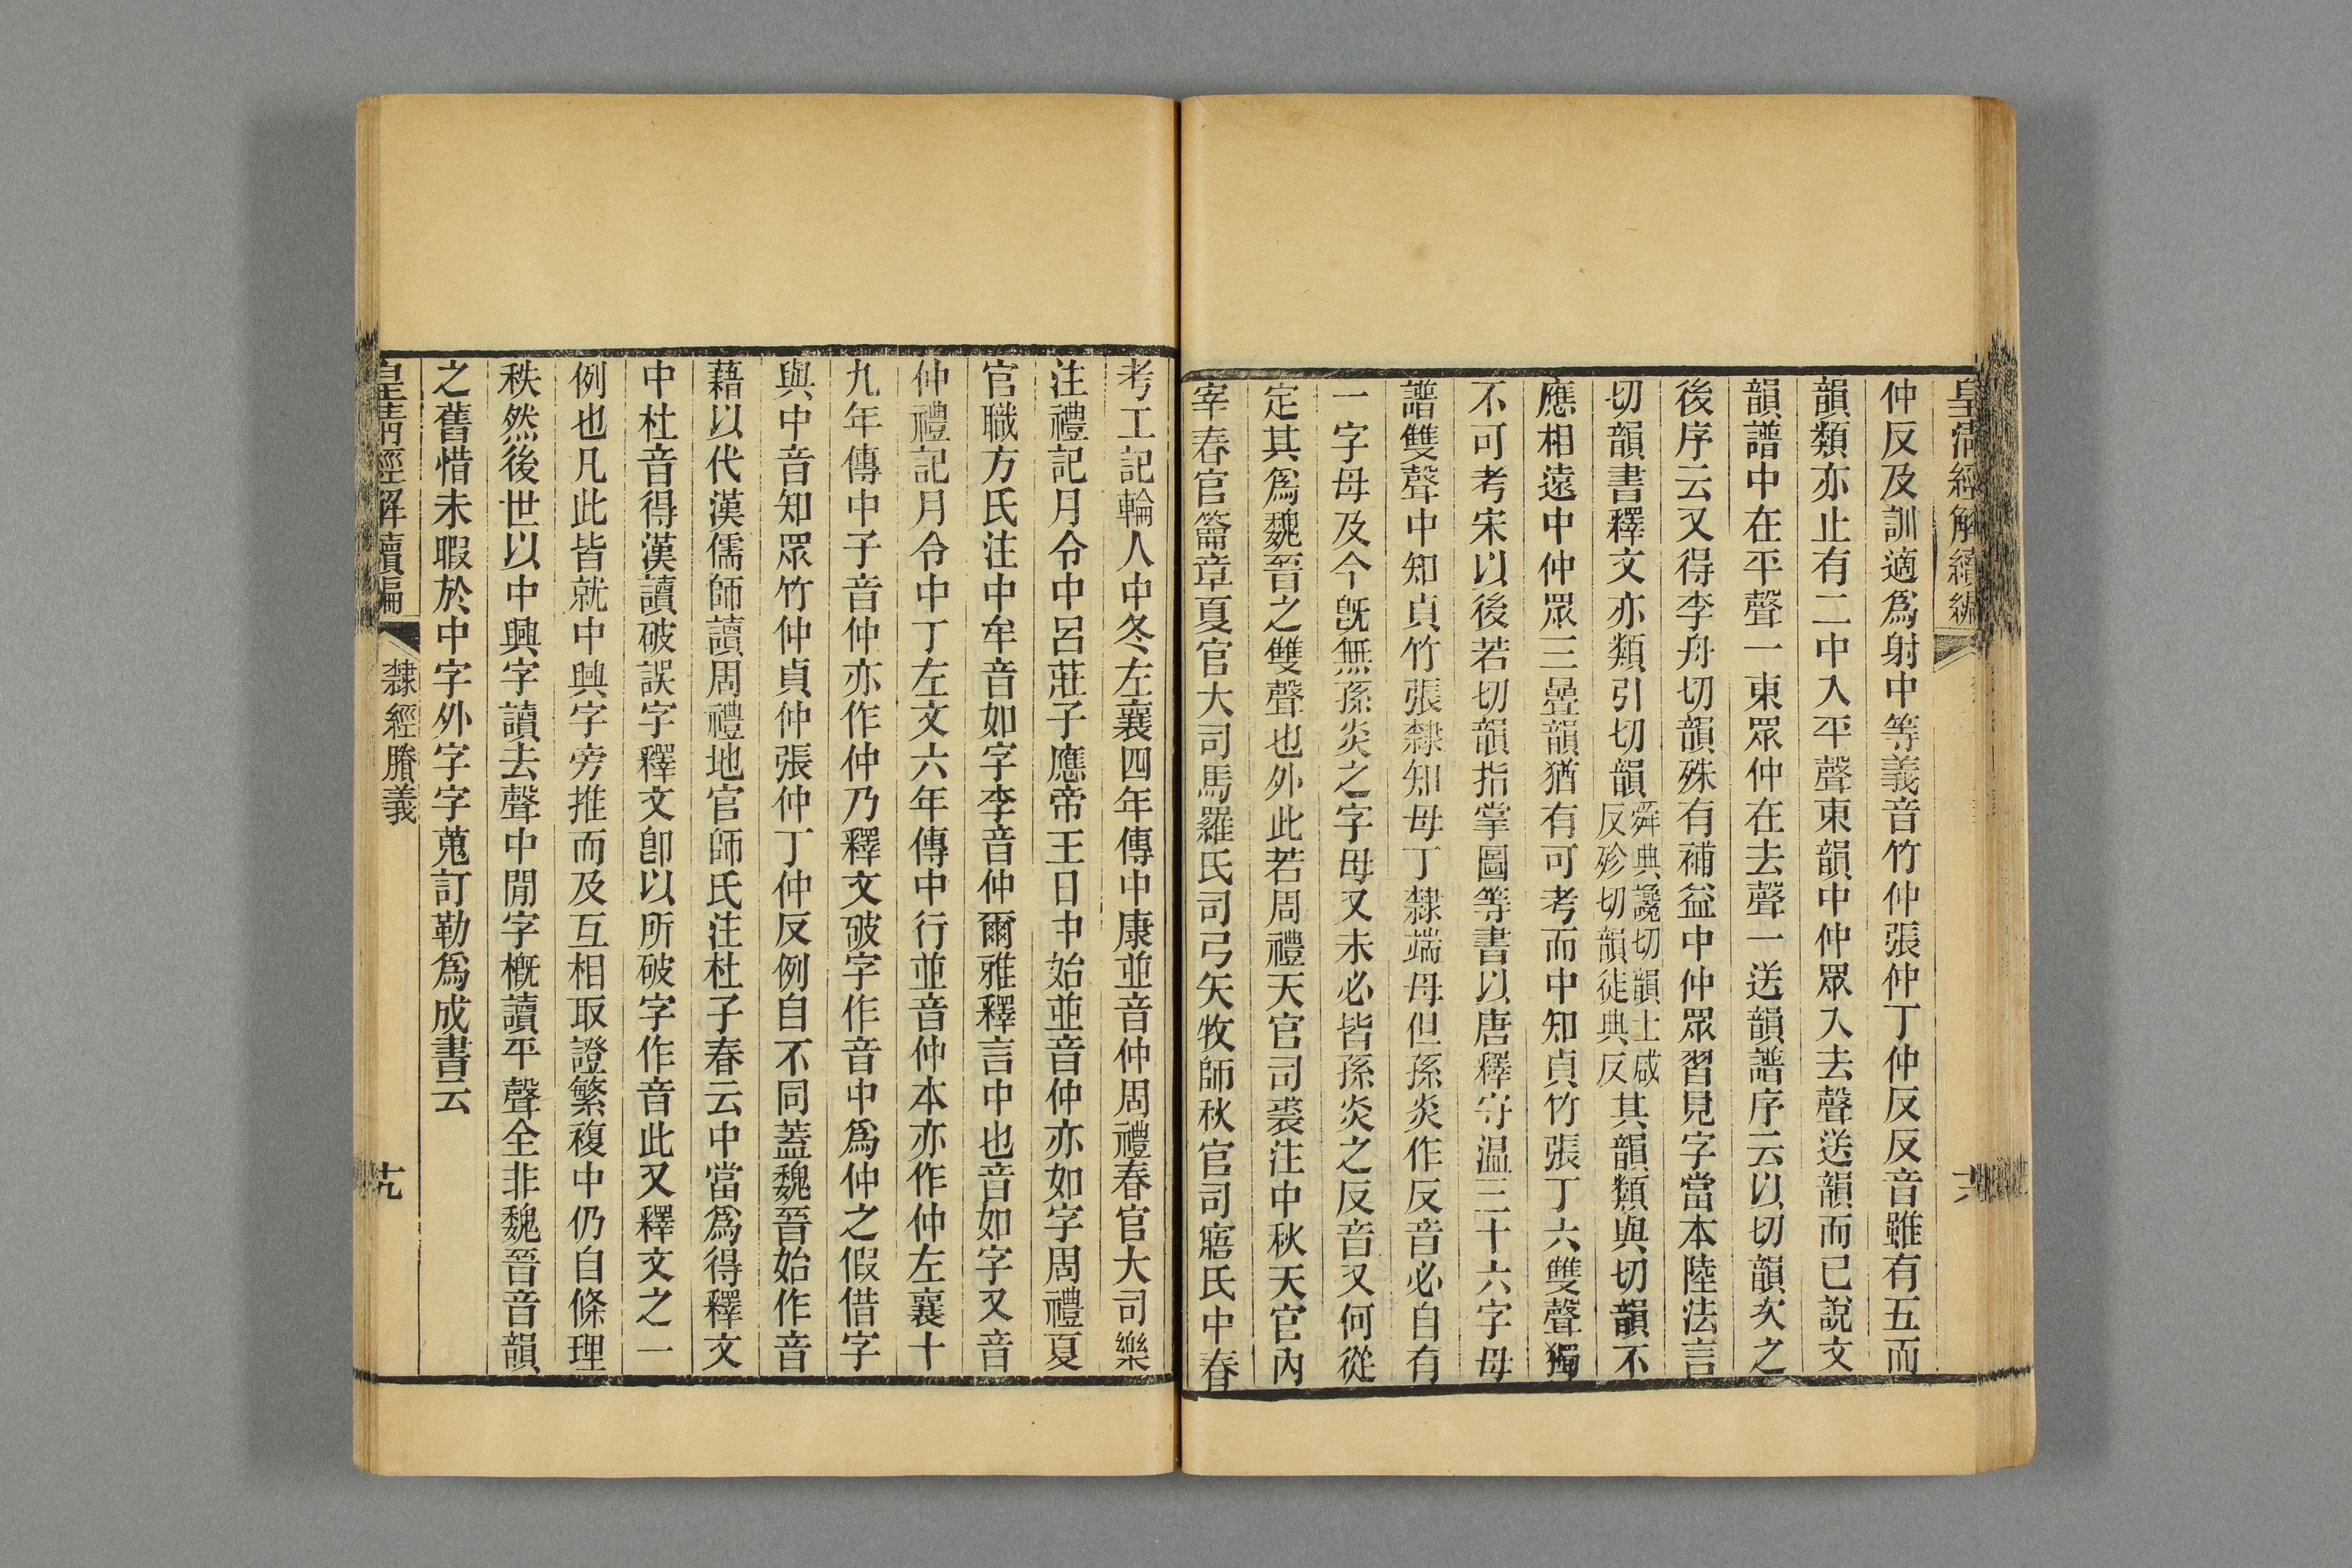 皇清經解續編
仲反及訓適爲射中等義音竹仲張仲丁仲反反音雖有五而
韻類亦止有二中入平聲東韻中仲眾入去聲送韻而已說文
韻譜中在平聲一東眾仲在去聲一送韻譜序云以切韻次之
後序云又得李舟切韻殊有補益中仲眾習見字當本陸法言
切韻書釋文亦類引切韻舜典讒切韻士咸反殄切韻徒典反其韻類與切韻不
應相遠中仲眾三疊韻猶有可考而中知貞竹張丁六雙聲獨
不可考宋以後若切韻指掌圖等書以唐釋守温三十六字母
譜雙聲中知貞竹張隸知母丁隸端母但孫炎作反音必自有
一字母及今旣無孫炎之字母又未必皆孫炎之反音又何從
定其爲魏晉之雙聲也外此若周禮天官司裘注中秋天官內
宰春官籥章夏官大司馬羅氏司弓矢牧師秋官司寤氏中春
考工記輪人中冬左襄四年傳中康並音仲周禮春官大司樂
注禮記月令中呂莊子應帝王日中始並音仲亦如字周禮夏
官職方氏注中牟音如字李音仲爾雅釋言中也音如字又音
仲禮記月令中丁左文六年傳中行並音仲本亦作仲左襄十
九年傳中子音仲亦作仲乃釋文破字作音中爲仲之假借字
與中音知眾竹仲貞仲張仲丁仲反例自不同蓋魏晉始作音
藉以代漢儒師讀周禮地官師氏注杜子春云中當爲得釋文
中杜音得漢讀破誤字釋文卽以所破字作音此又釋文之一
例也凡此皆就中興字旁推而及互相取證繁複中仍自條理
秩然後世以中興字讀去聲中閒字槪讀平聲全非魏晉音韻
之舊惜未暇於中字外字字蒐訂勒爲成書云
皇清經解續編 隸經賸義